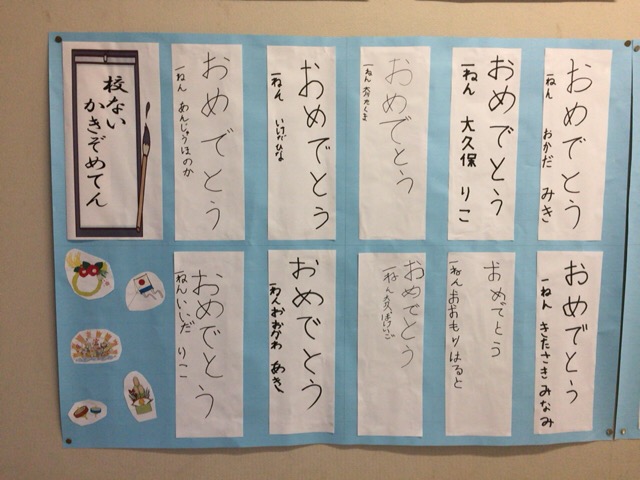 校ない
かきぞめてん
おめでとう
一ねん あんじゅうほのか
おめでとう
一ねん いけだひな
おめでとう
一ねん
おめでとう
一ねん 大久保 りこ
おめでとう
一ねん おかだ みき
おめでとう
一ねんいいだ りこ
おめでとう
一ねんおおがわ あき
おめでとう
一ねん
おめでとう
一ねんおおもりはると
おめでとう
一ねん きたさきみなみ